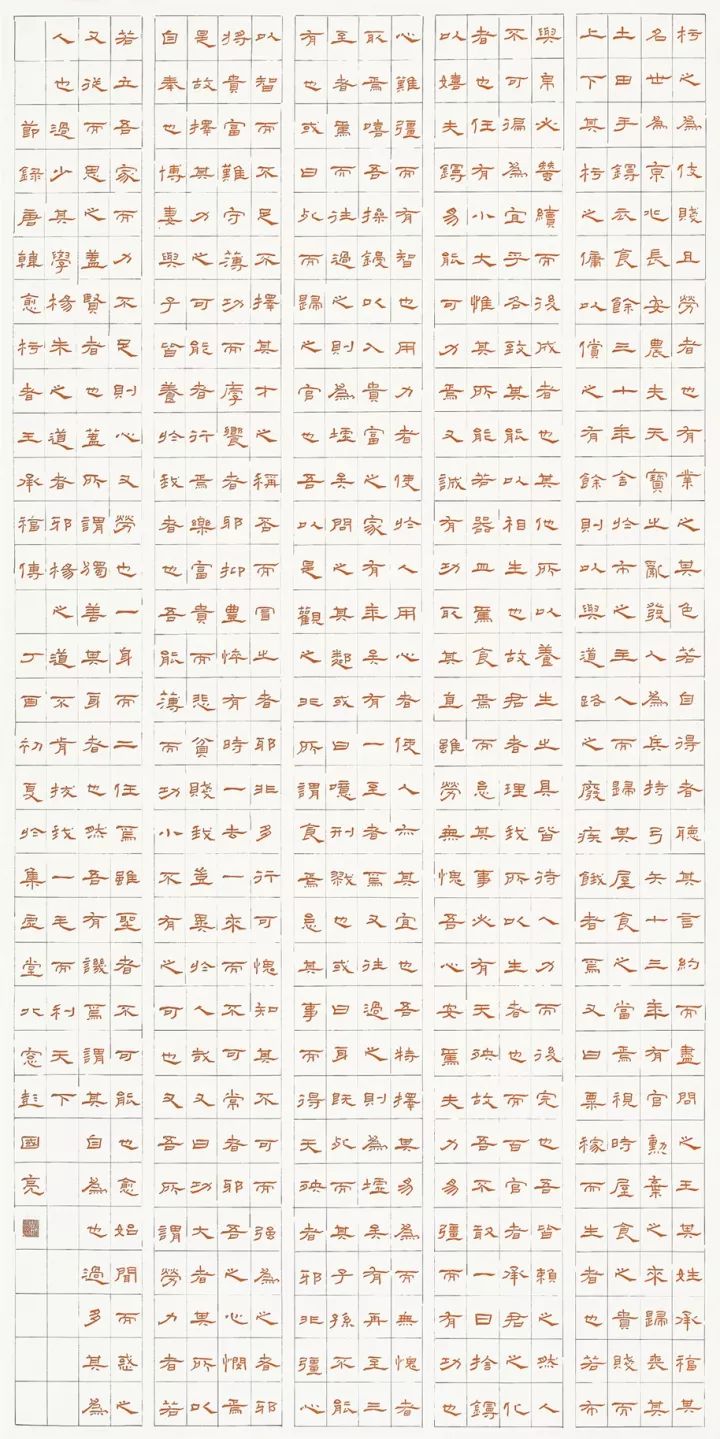 圬之為伎賤且勞者也有業之其色若自得者聽其言約而盡問之王其姓承福其
名世為京兆長安農夫天寶之亂發人為兵持弓矢十三年有官勳棄之來歸喪其
土田手鏝衣食餘三十年舍於市之主人而歸其屋食之當焉視時屋食之貴賤而
上下其圬之傭以償之有餘則以與道路之廢疾餓者焉又曰粟稼而生者也若布
與帛必蠶績而後成者也其他所以養生之具皆待人力而後完也吾皆賴之然人
不可徧為宜乎各致其能以相生也故君者理我所以生者也而百官者承君之化
者也任有小大惟其所能若器皿焉食焉而怠其事必有天殃故吾不敢一日捨鏝
以嬉夫鏝易能可力焉又誠有功取其直雖勞無愧吾心安焉夫力易彊而有功也
心難彊而有智也用力者使於人用心者使人亦其宜也吾特擇其易為而無愧者
取焉嘻吾操鏝以入貴富之家有年矣有一至者焉又往過之則為墟矣有再至三
至者焉而往過之則為墟矣問之其鄰或曰噫刑戮也或曰身既死而其子孫不能
有也或曰死而歸之官也吾以是觀之非所謂食焉怠其事而得天殃者邪非彊心
以智而不足不擇其才之稱否而冒之者耶非多行可愧知其不可而强為之者邪
將貴富難守薄功而厚饗者邪抑豐悴有時一去一來而不可常者邪吾之心憫焉
是故擇其力之可能者行焉樂富貴而悲貧賤我豈異於人哉又曰功大者其所以
自奉也博妻與子皆養於我者也吾能薄而功小不有之可也又吾所謂勞力者若
若立吾家而力不足則心又勞也一身而二任焉雖聖者不可能也愈始聞而惑之
又從而思之蓋賢者也蓋所謂獨善其身者也然吾有譏焉謂其自為也過多其為
人也過少其學楊朱之道者邪楊之道不肯拔我一毛而利天下
節錄唐韓愈圬者王承福傳 丁酉初夏於集虛堂北窗彭國亮